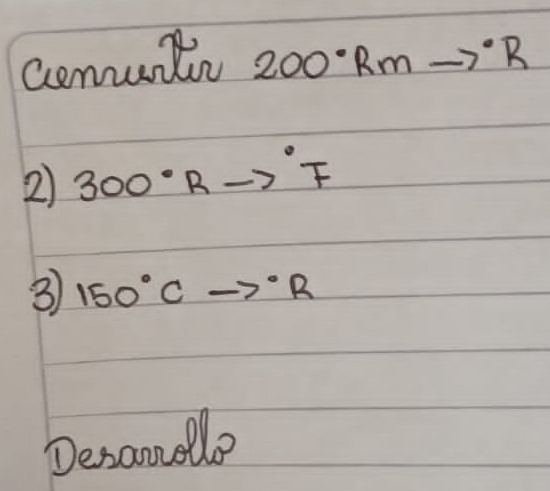 Convertir 200°Rm → °R
2) 300°R → °F
3) 150°C → °R
Desarrollo